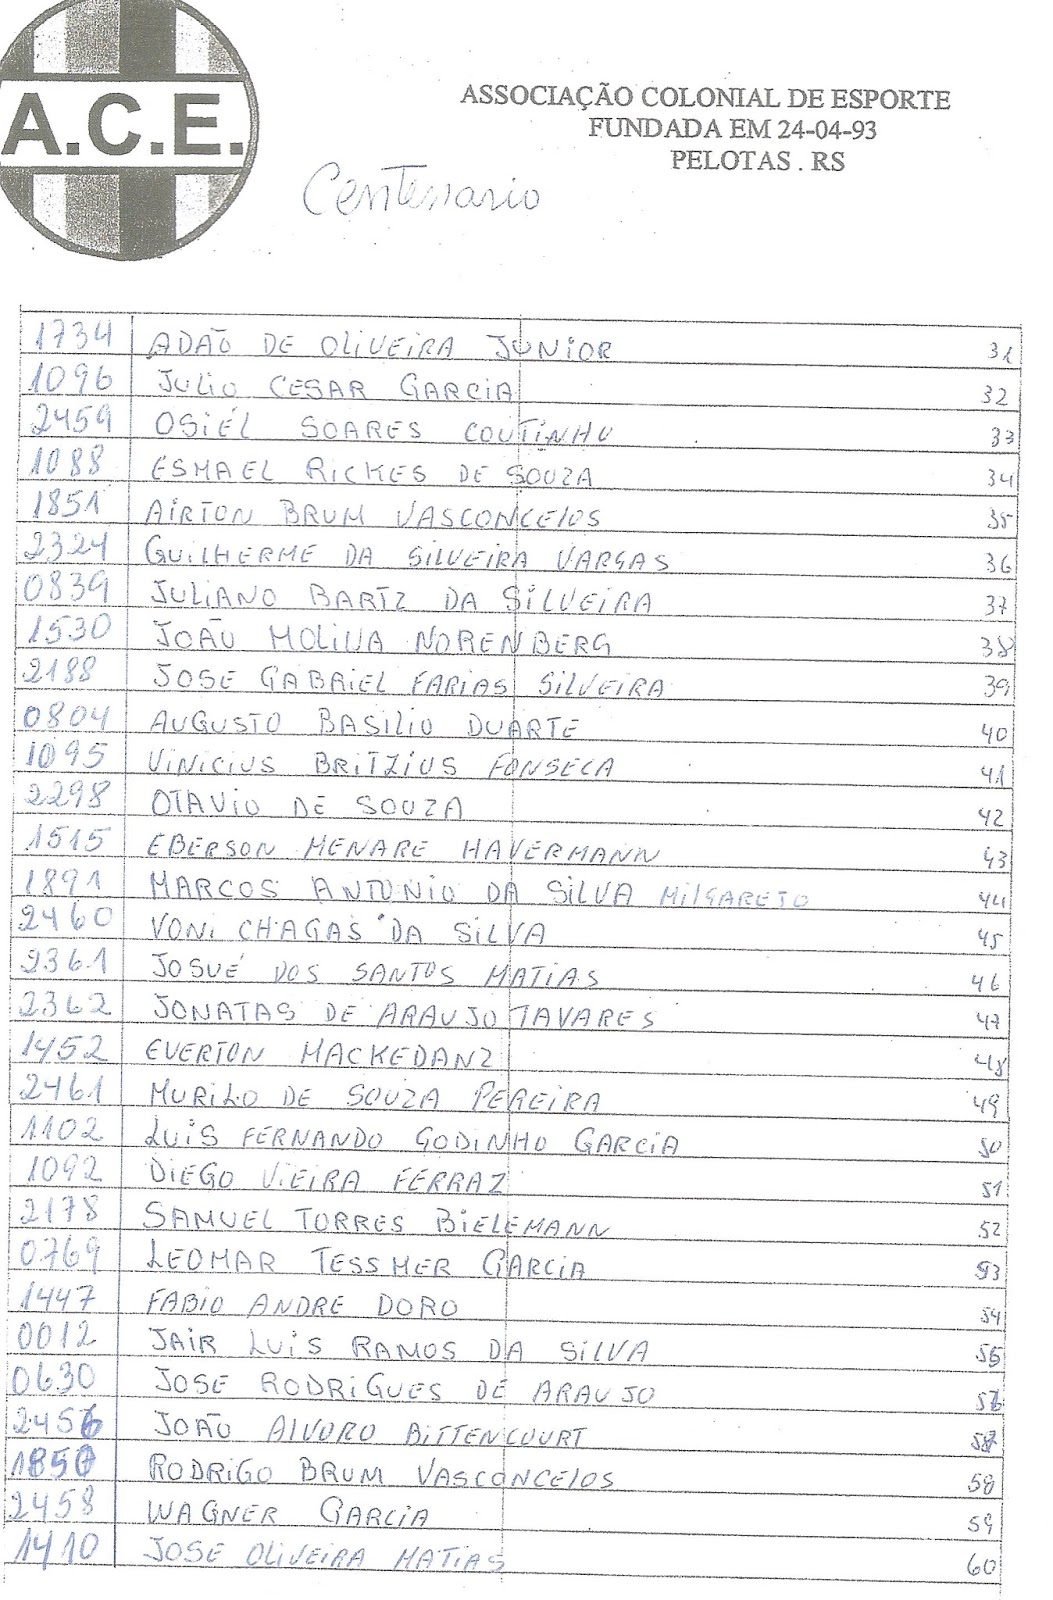 A.C.E.
ASSOCIAÇÃO COLONIAL DE ESPORTE
FUNDADA EM 24-04-93
PELOTAS . RS
Centenario
1734 ADÃO DE OLIVEIRA JUNIOR 31
1096 JULIO CESAR GARCIA 32
2459 OSIÉL SOARES COUTINHO 33
1088 ESMAEL RICKES DE SOUZA 34
1851 AIRTON BRUM VASCONCELOS 35
2324 GUILHERME DA SILVEIRA VARGAS 36
0839 JULIANO BARTZ DA SILVEIRA 37
1530 JOÃO MOLINA NORENBERG 38
2188 JOSE GABRIEL FARIAS SILVEIRA 39
0804 AUGUSTO BASILIO DUARTE 40
1095 VINICIUS BRITZIUS FONSECA 41
2298 OTAVIO DE SOUZA 42
1515 EBERSON MENARE HAVERMANN 43
1891 MARCOS ANTONIO DA SILVA MILGARETO 44
2460 VONI CHAGAS DA SILVA 45
2361 JOSUÉ DOS SANTOS MATIAS 46
2362 JONATAS DE ARAUJO TAVARES 47
1452 EVERTON MACKEDANZ 48
2461 MURILO DE SOUZA PEREIRA 49
1102 LUIS FERNANDO GODINHO GARCIA 50
1092 DIEGO VIEIRA FERRAZ 51
2178 SAMUEL TORRES BIELEMANN 52
0769 LEOMAR TESSMER GARCIA 53
1447 FABIO ANDRE DORO 54
0012 JAIR LUIS RAMOS DA SILVA 55
0630 JOSE RODRIGUES DE ARAUJO 56
2456 JOÃO ALVORO BITTENCOURT 57
1850 RODRIGO BRUM VASCONCELOS 58
2458 WAGNER GARCIA 59
1410 JOSE OLIVEIRA MATIAS 60